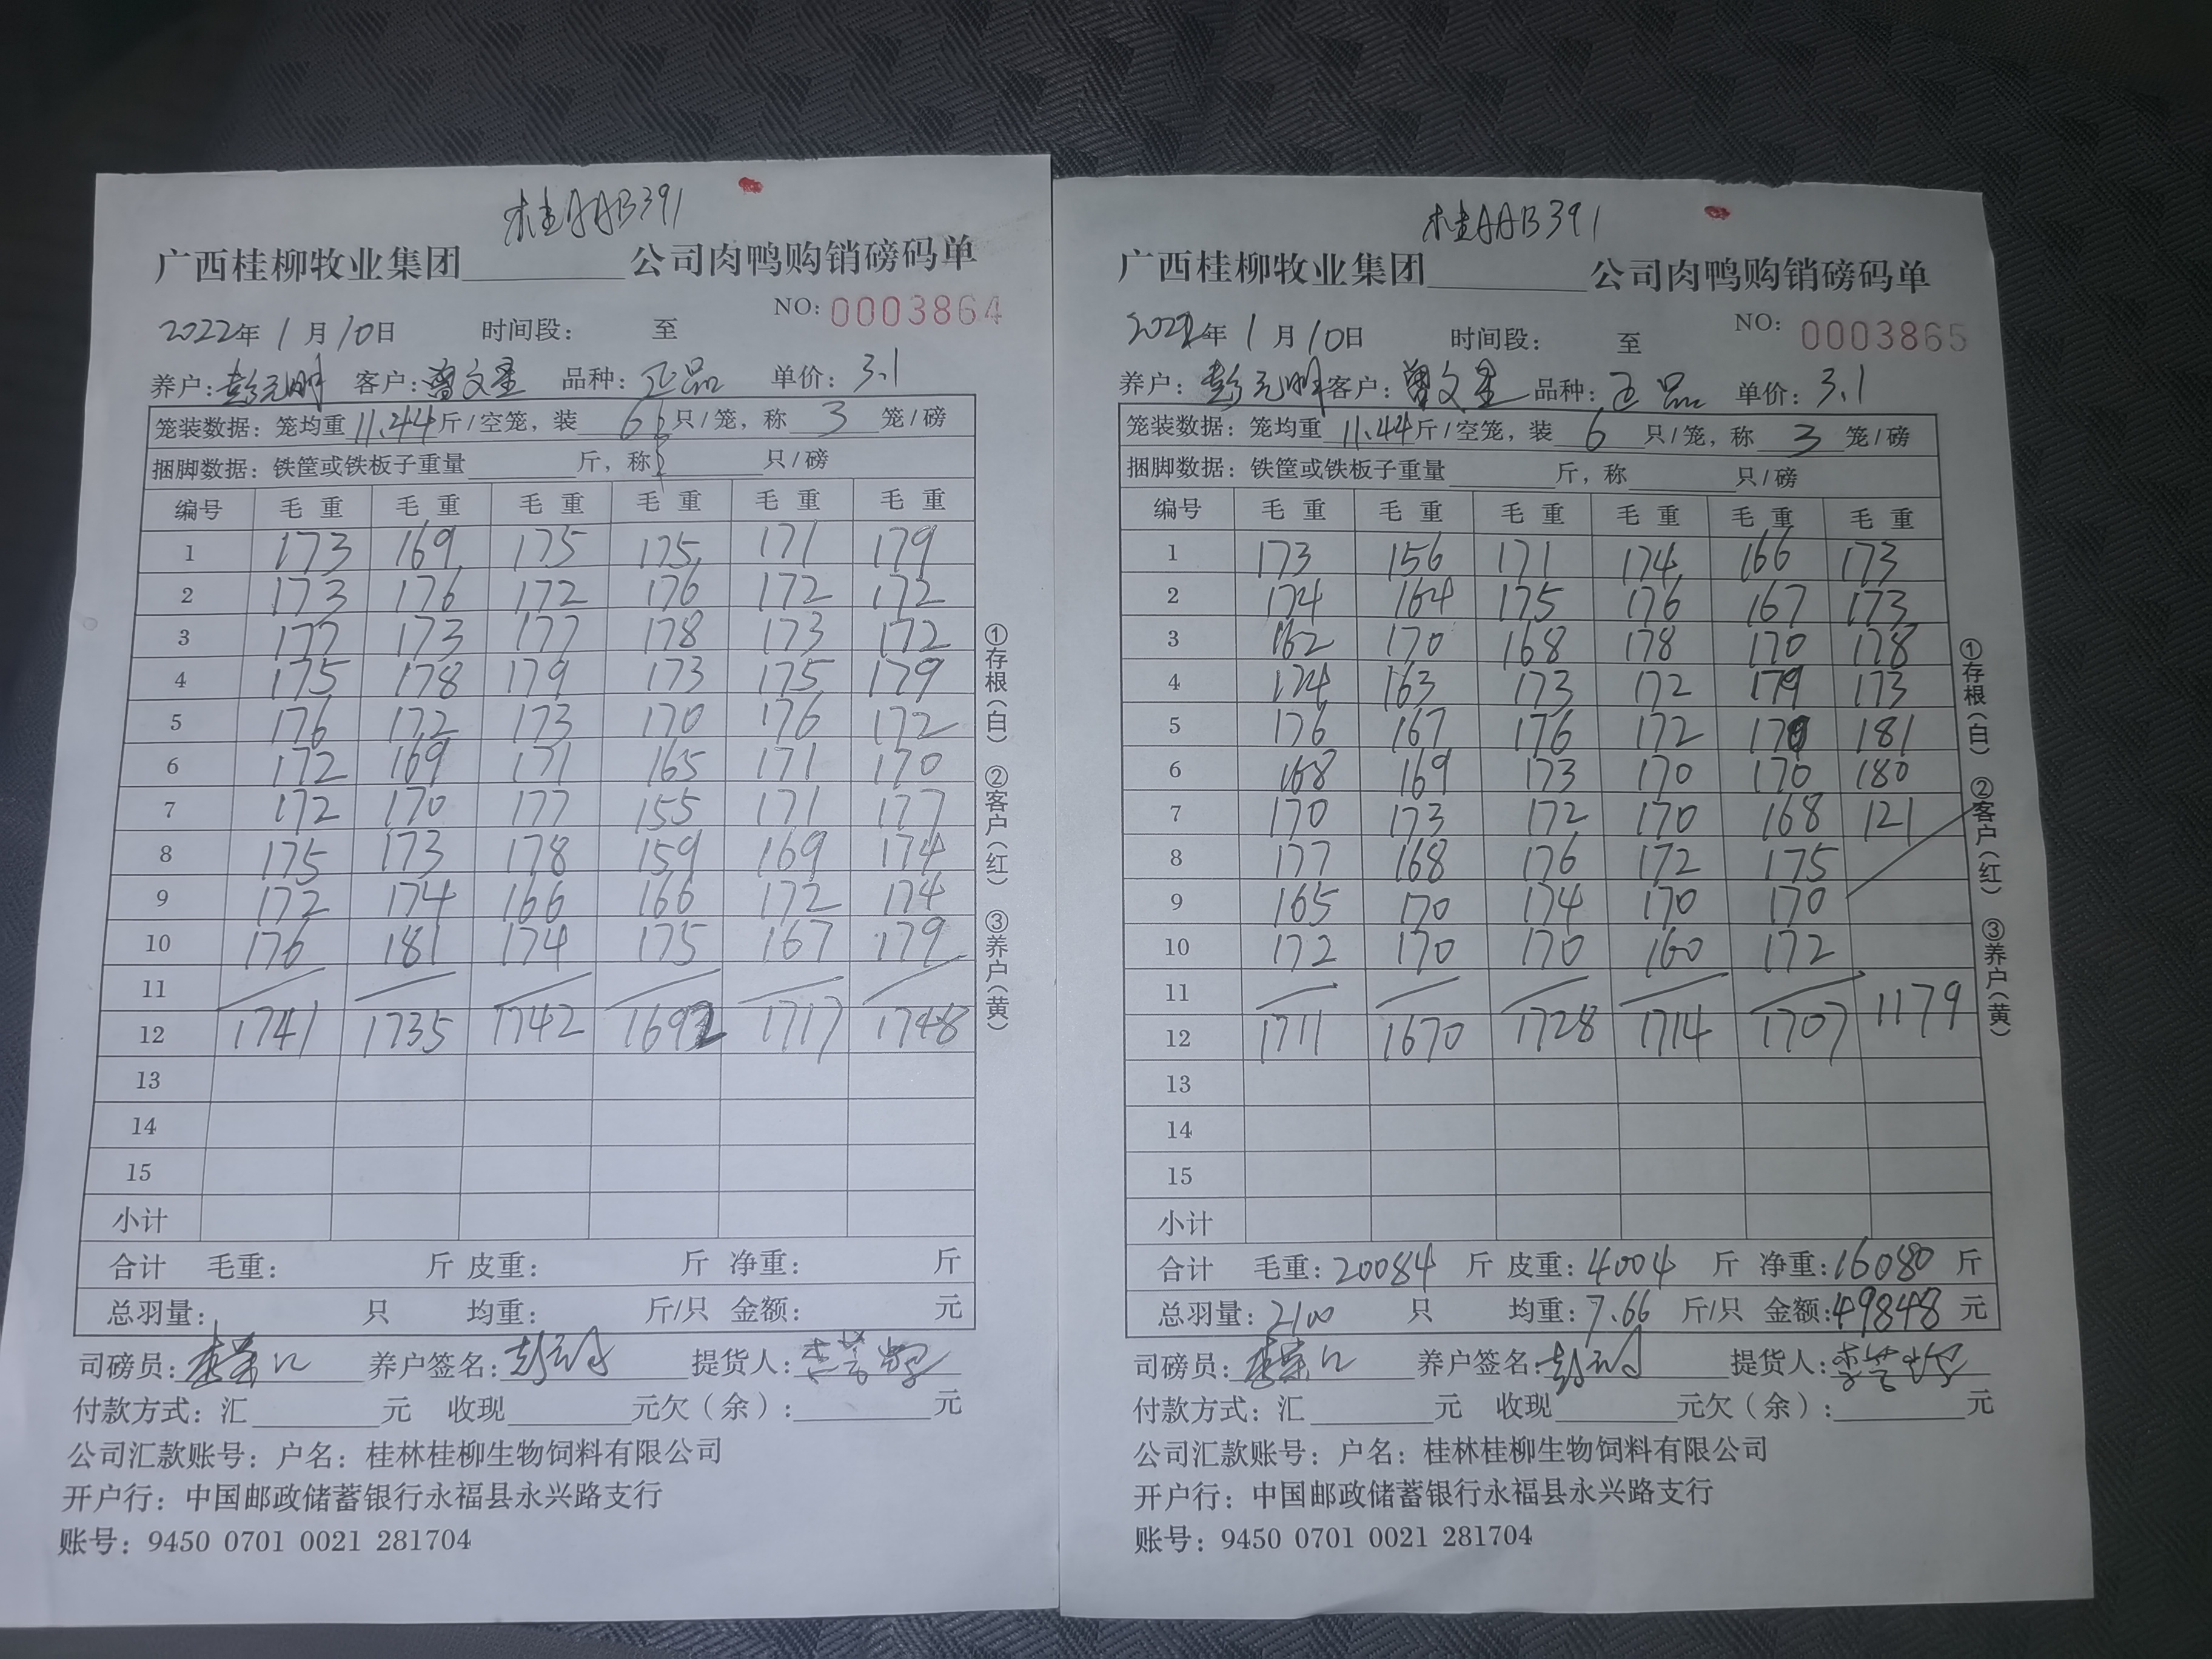 桂AAB391
广西桂柳牧业集团________公司肉鸭购销磅码单
NO: 0003864
2022年 1月10日 时间段: 至
养户: 彭元明 客户: 曾文星 品种: 正品 单价: 3.1
笼装数据: 笼均重 11.44 斤/空笼, 装 6 只/笼, 称 3 笼/磅
捆脚数据: 铁筐或铁板子重量______斤, 称______只/磅
编号 毛重 毛重 毛重 毛重 毛重 毛重
1 173 169 175 175 171 179
2 173 176 172 176 172 172
3 177 173 177 178 173 172
4 175 178 179 173 175 179
5 176 172 173 170 176 172
6 172 169 171 165 171 170
7 172 170 177 155 171 177
8 175 173 178 159 169 174
9 172 174 166 166 172 174
10 176 181 174 175 167 179
11
12 1741 1735 1742 1692 1717 1748
13
14
15
小计
合计 毛重: 斤 皮重: 斤 净重: 斤
总羽量: 只 均重: 斤/只 金额: 元
司磅员: 养户签名: 提货人:
付款方式: 汇______元 收现______元欠(余):______元
公司汇款账号: 户名: 桂林桂柳生物饲料有限公司
开户行: 中国邮政储蓄银行永福县永兴路支行
账号: 9450 0701 0021 281704
①存根(白) ②客户(红) ③养户(黄)
桂AAB391
广西桂柳牧业集团________公司肉鸭购销磅码单
NO: 0003865
2022年 1月10日 时间段: 至
养户: 彭元明 客户: 曾文星 品种: 正品 单价: 3.1
笼装数据: 笼均重 11.44 斤/空笼, 装 6 只/笼, 称 3 笼/磅
捆脚数据: 铁筐或铁板子重量______斤, 称______只/磅
编号 毛重 毛重 毛重 毛重 毛重 毛重
1 173 156 171 174 166 173
2 174 164 175 176 167 173
3 162 170 168 178 170 178
4 174 163 173 172 179 173
5 176 167 176 172 170 181
6 168 169 173 170 170 180
7 170 173 172 170 168 121
8 177 168 176 172 175
9 165 170 174 170 170
10 172 170 170 160 172
11
12 1711 1670 1728 1714 1707 1179
13
14
15
小计
合计 毛重: 20084 斤 皮重: 4004 斤 净重: 16080 斤
总羽量: 2100 只 均重: 7.66 斤/只 金额: 49848 元
司磅员: 养户签名: 提货人:
付款方式: 汇______元 收现______元欠(余):______元
公司汇款账号: 户名: 桂林桂柳生物饲料有限公司
开户行: 中国邮政储蓄银行永福县永兴路支行
账号: 9450 0701 0021 281704
①存根(白) ②客户(红) ③养户(黄)